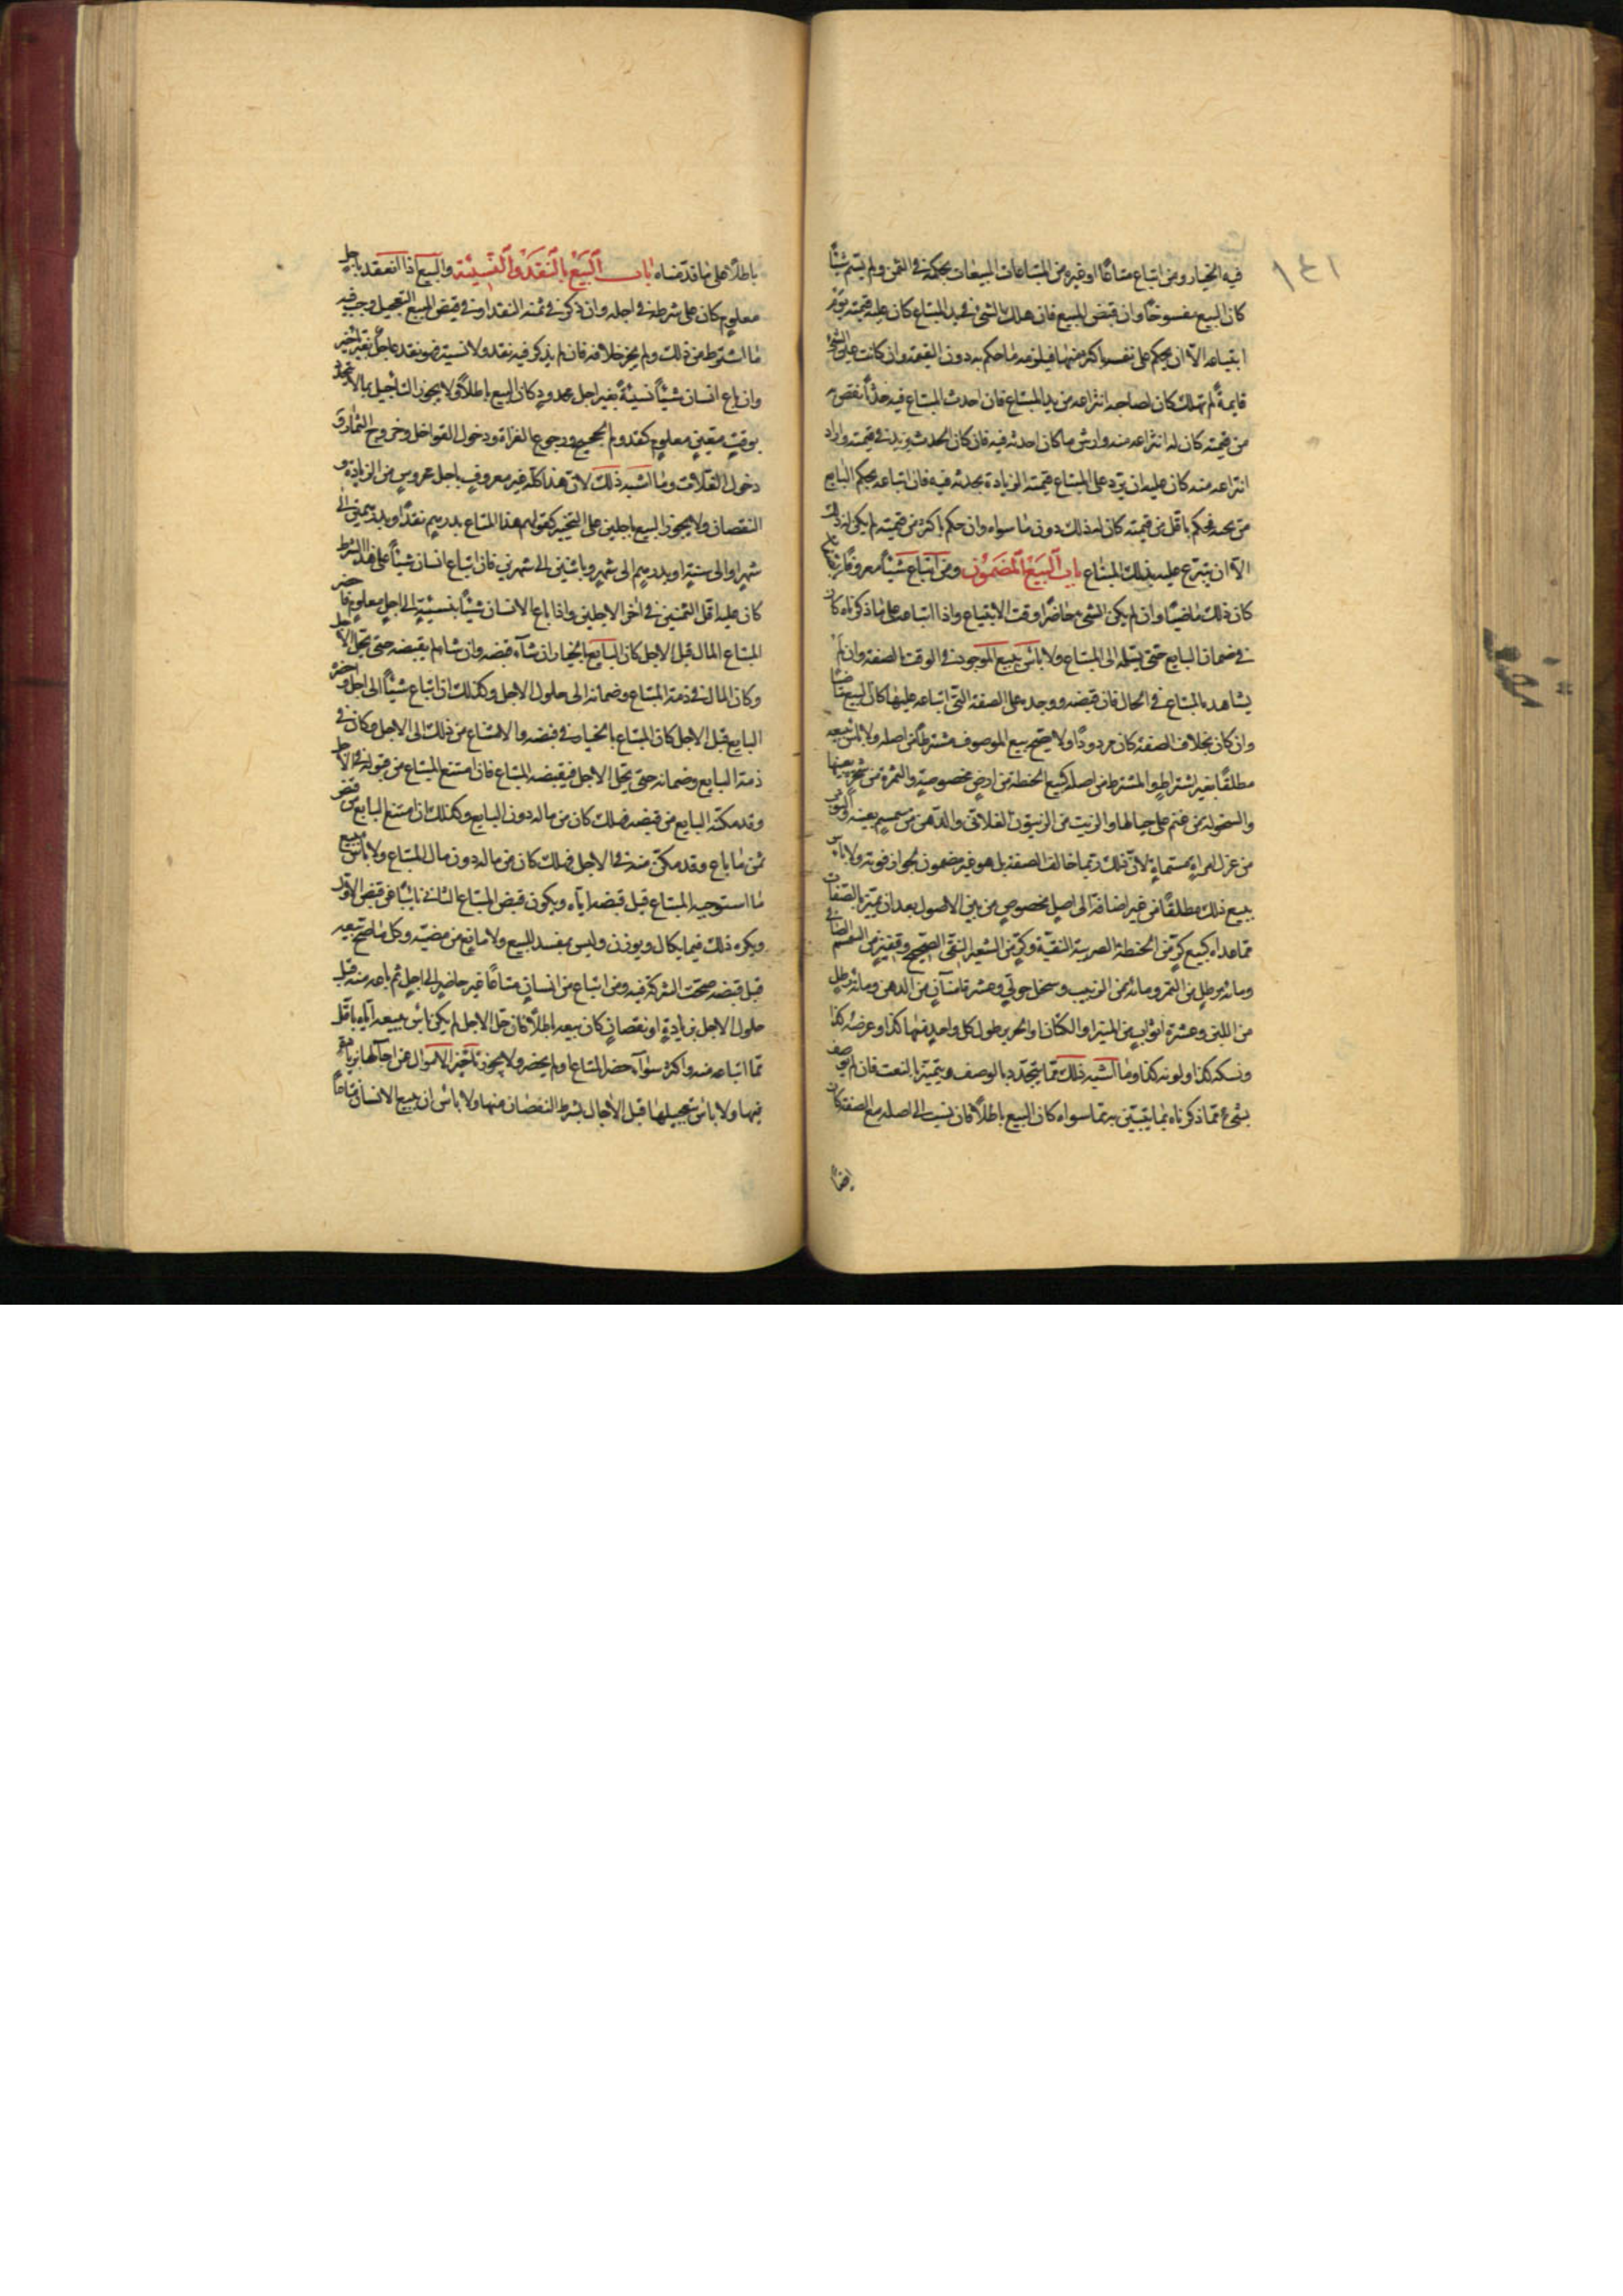 ١٤١
فيه الخيار ومن ابتاع متاعًا او غيره من المبتاعات المبيعات بحكمه في الثمن ولم يسم شيئًا
كان البيع مفسوخًا وان قبض المبيع فان هلك الشئ في يد المبتاع كان عليه قيمته يوم
ابتياعه الا ان يحكم على نفسه باكثر منها فيلزمه ما حكم به دون القيمة وان كانت عين الشئ
قايمةً لم تهلك كان لصاحبه انتزاعه من يد المبتاع فان احدث المبتاع فيه حدثًا نقص
من قيمته كان له انتزاعه منه وارش ما كان احدثه فيه فان كان الحدث يزيد في قيمته واراد
انتزاعه منه كان عليه ان يرد على المبتاع قيمته الزيادة بحدثه فيه فان ابتاعه بحكم البايع
من ثمنه فحكم باقل من قيمته كان له ذلك دون ما سواه وان حكم باكثر من قيمته لم يكن له ذلك
الا ان يتبرع عليه بذلك المبتاع باب البيع المضمون ومن ابتاع شيئًا معروفًا
كان ذلك ماضيًا وان لم يكن الشئ حاضرًا وقت الابتياع واذا ابتاعه على ما ذكرناه كان
في ضمان البايع حتى يسلمه الى المبتاع ولا بأس ببيع الموجود في الوقت بالصفة وان لم
يشاهده المبتاع في الحال فان قبضه ووجده على الصفة التي ابتاعه عليها كان البيع ماضيًا
وان كان بخلاف الصفة كان مردودًا ولا يصح بيع الموصوف مشترطًا من اصله ولا بأس ببيعه
مطلقًا بغير اشتراط والمشترط من اصله كبيع الحنطة من ارض مخصوصة والثمرة من شجرة بعينها
والسخولة من غنم على حيالها والزيت من الزيتون الفلاني والدهن من سمسم بعينه والثوب
من غزل امراة مسماة لان ذلك ربما خالف الصفة بل هو غير مضمون لجواز فوته ولا بأس
ببيع ذلك مطلقًا من غير اضافة الى اصل مخصوص من بين الاصول بعد ان يميز بالصفات
مما عداه كبيع كر من الحنطة الصربية النقية وكر من الشعير النقي الصحيح وقفيز من السمسم الصافي
ومائة رطل من التمر ومائة من الزبيب وسخل حولي وعشرة امنان من الدهن ومائة رطل
من اللبن وعشرة اثواب من الميزر او الكتان او الحرير طول كل واحد منها كذا وعرضه كذا
وسكته كذا ولونه كذا وما اشبه ذلك مما يتحدد بالوصف ويتميز بالنعت فان لم يوصف
بشئ مما ذكرناه بما يتبين به مما سواه كان البيع باطلاً فان نسب الى اصله مع الصفة كان
باطلاً على ما قدمناه باب البيع بالنقد والنسيئة والبيع اذا انعقد باجل
معلوم كان على شرطه في اجله وان ذكر في ثمنه النقد او في قبض المبيع التعجيل وجب فيه
ما اشترط من ذلك ولم يجز خلافه فان لم يذكر فيه نقد ولا نسية فهو نقد عاجل بغير تأخير
وان باع انسان شيئًا نسيئةً بغير اجل محدود كان البيع باطلاً ولا يجوز التأجيل بما لا يحد
بوقت معين معلوم كقدوم الحجيج ورجوع الغزاة ودخول القوافل وخروج الثمار و
دخول الغلات وما اشبه ذلك لان هذا كله غير معروف باجل محروس من الزيادة و
النقصان ولا يجوز البيع باجلين على التخيير كقولهم هذا المتاع بدرهم نقدًا وبدرهمين الى
شهر او الى سنة او بدرهم الى شهر وباثنين الى شهرين فان ابتاع انسان شيئًا على هذا الشرط
كان عليه اقل الثمنين في اخر الاجلين واذا باع الانسان شيئًا بنسيئة الى اجل معلوم فاحضر
المبتاع المال قبل الاجل كان البايع بالخيار ان شآء قبضه وان شاء لم يقبضه حتى يحل الاجل
وكان المال في ذمة المبتاع وضمانه الى حلول الاجل وكذلك ان ابتاع شيئًا الى اجل واحضره
البايع قبل الاجل كان المبتاع بالخيار في قبضه والامتناع من ذلك الى الاجل وكان في
ذمة البايع وضمانه حتى يحل الاجل فيقبضه المبتاع فان امتنع المبتاع من قبوله في الاجل
وقد مكنه البايع من قبضه فهلك كان من ماله دون البايع وكذلك ان امتنع البايع من قبض
ثمن ما باع وقد مكن منه في الاجل فهلك كان من ماله دون مال المبتاع ولا بأس ببيع
ما استوجبه المبتاع قبل قبضه اياه ويكون قبض المبتاع الثاني نائبًا عن قبض الاول
ويكره ذلك فيما يكال ويوزن وليس بمفسد للبيع ولا مانع من مضيه وكل ما صح بيعه
قبل قبضه صحت الشركة فيه ومن ابتاع من انسان متاعًا غير حاضر الى اجل ثم باعه منه قبل
حلول الاجل بزيادة او نقصان كان بيعه باطلاً فان حل الاجل لم يكن بأس ببيعه اياه باقل
مما ابتاعه منه واكثر سوآء حضر المتاع او لم يحضر ولا يجوز تأخير الاموال عن آجالها بزيادة
فيها ولا بأس بتعجيلها قبل الآجال بشرط النقصان منها ولا بأس ان يبيع الانسان متاعًا